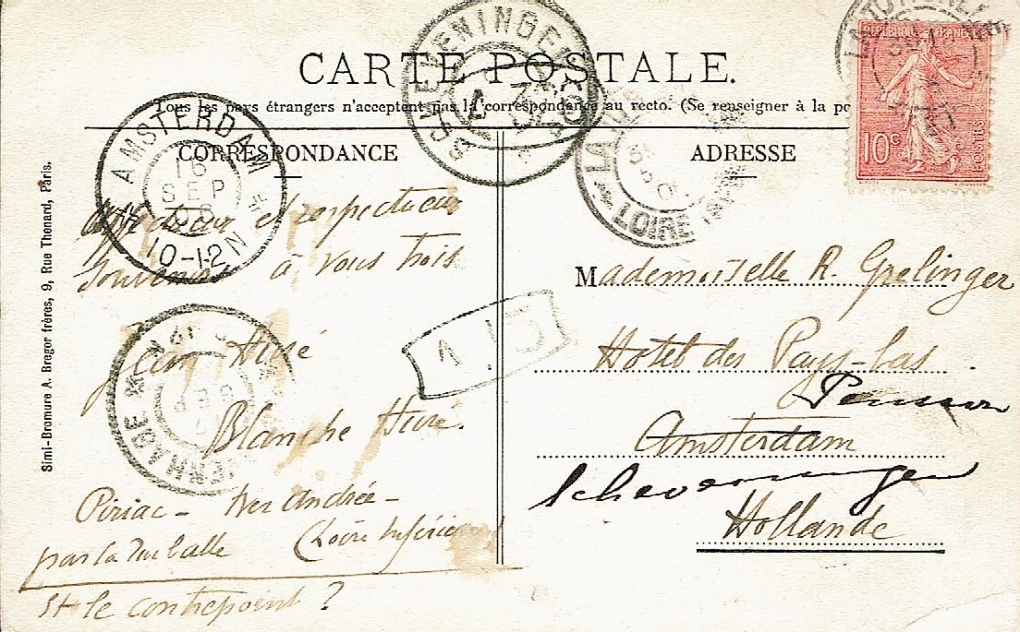 CARTE POSTALE.
Tous les pays étrangers n'acceptent pas la correspondance au recto. (Se renseigner à la po
CORRESPONDANCE
ADRESSE
Simi-Bromure A. Bregor frères, 9, Rue Thenard, Paris.
AMSTERDAM
16
SEP
10-12N
SCHEVENINGEN
LOIRE
REPUBLIQUE FRANÇAISE
10c
POSTES
et respectueux
Souvenirs à vous trois
Jean Huré
Blanche Huré.
Piriac - Ker Andrée -
par la Turballe (Loire Inférieure)
Et le contrepoint ?
Mademoiselle R. Grelinger
Hotel des Pays-bas
Pension
Amsterdam
Scheveningen
Hollande